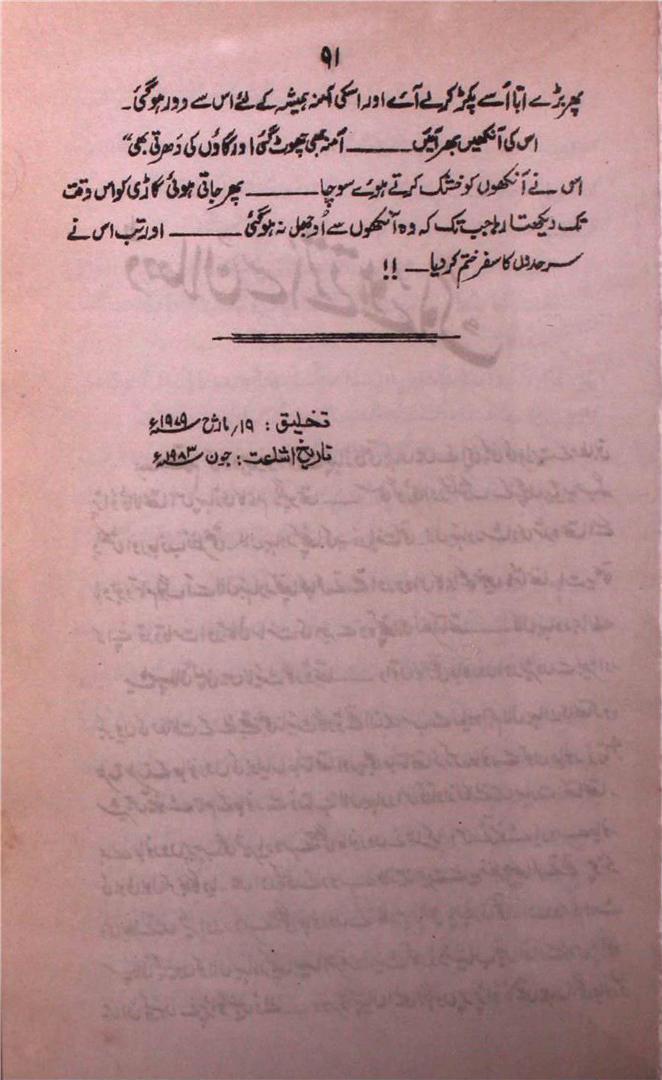 ۹۱
پھر بڑے ابّا اُسے پکڑ کر لے آئے اور اسکی آمنہ ہمیشہ کے لئے اس سے دور ہو گئی۔
اس کی آنکھیں بھر آئیں ـــــــ آمنہ بھی چھوٹ گئی اور گاؤں کی دَھرتی بھی"
اس نے آنکھوں کو خشک کرتے ہوئے سوچا ـــــــ پھر جاتی ہوئی گاڑی کو اس وقت
تک دیکھتا رہا جب تک کہ وہ آنکھوں سے اُوجھل نہ ہو گئی ـــــــ اور تب اس نے
سرحدوں کا سفر ختم کر دیا ــ !!
تخلیق : ۱۹؍ مارچ ۱۹۷۹ء
تاریخ اشاعت : جون ۱۹۸۳ء